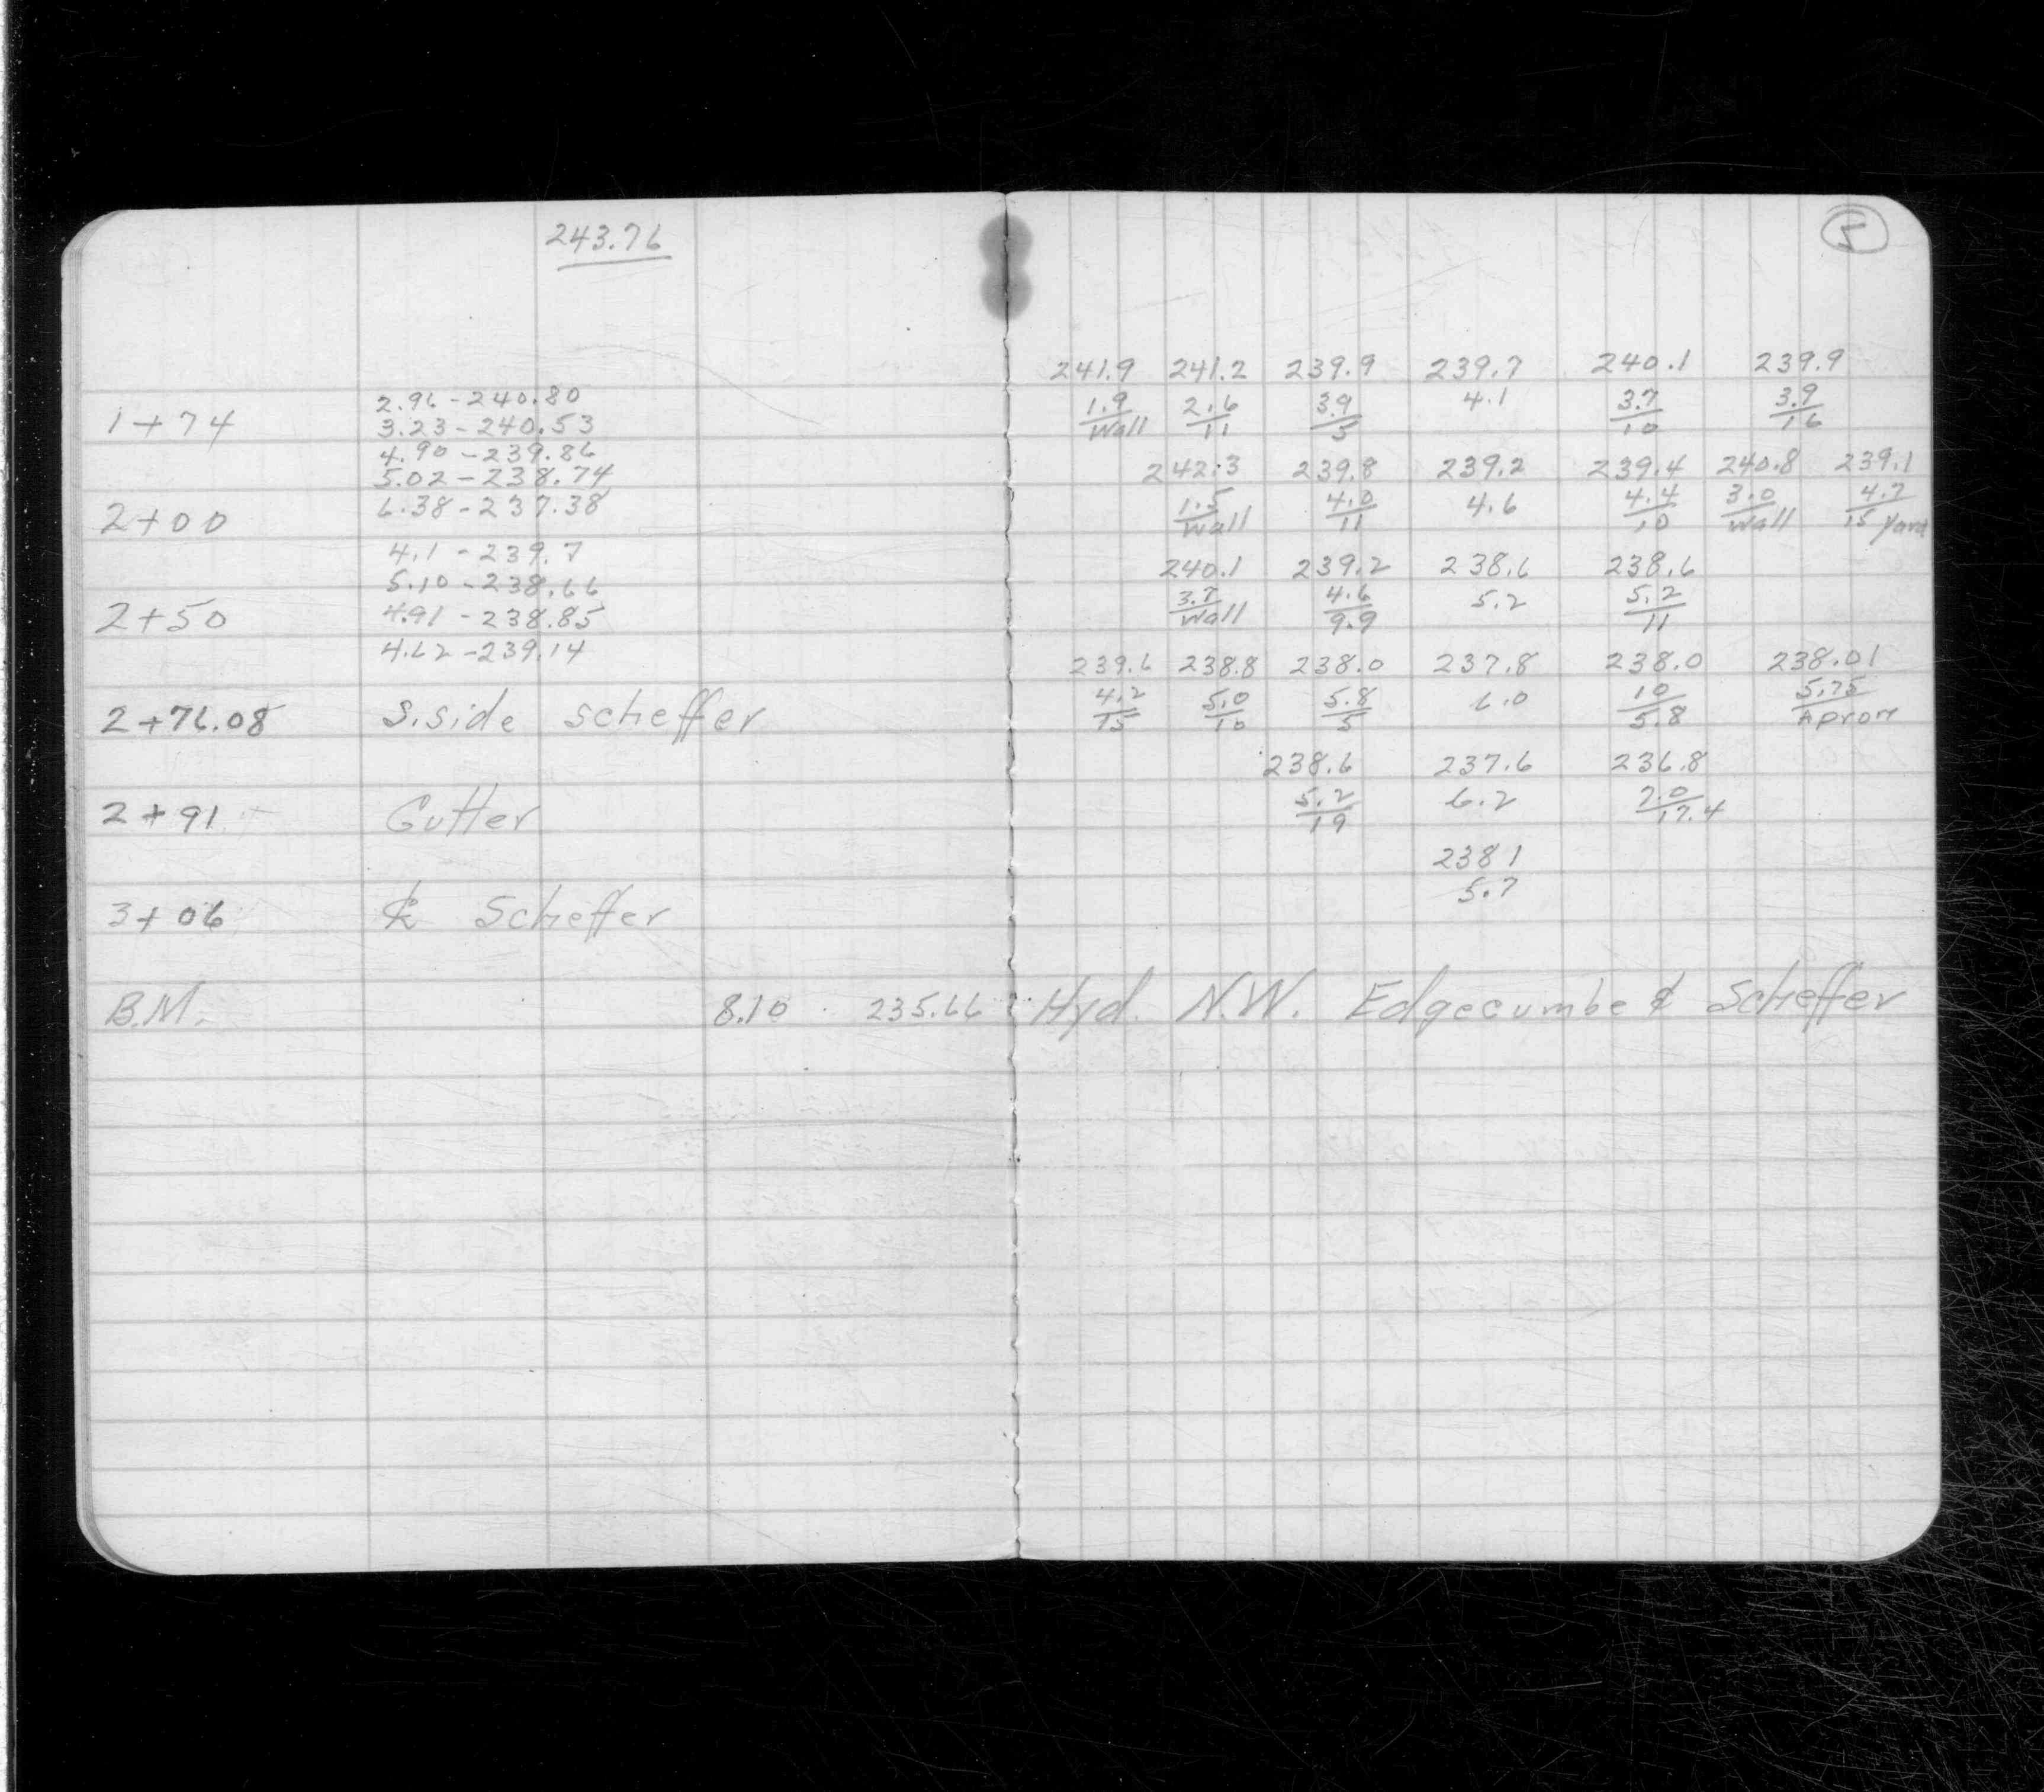 243.76
5
2.96 - 240.80
1+74
3.23 - 240.53
4.90 - 239.86
5.02 - 238.74
2+00
6.38 - 237.38
4.1 - 239.7
5.10 - 238.66
2+50
4.91 - 238.85
4.62 - 239.14
2+76.08 S.side scheffer
2+91 Gutter
3+06 ℄ Scheffer
B.M. 8.10 235.66
241.9 241.2 239.9 239.7 240.1 239.9
1.9 2.6 3.9 4.1 3.7 3.9
Wall 11 5 10 16
242.3 239.8 239.2 239.4 240.8 239.1
1.5 4.0 4.6 4.4 3.0 4.7
Wall 11 10 Wall 15 Yard
240.1 239.2 238.6 238.6
3.7 4.6 5.2 5.2
Wall 9.9 11
239.6 238.8 238.0 237.8 238.0 238.01
4.2 5.0 5.8 6.0 10 5.75
15 10 5 5.8 Apron
238.6 237.6 236.8
5.2 6.2 7.0
19 17.4
238 1
5.7
Hyd. N.W. Edgecumbe & Scheffer